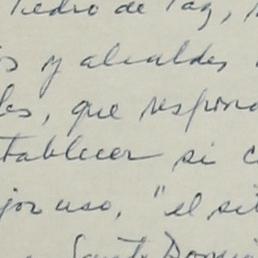 Pedro de Paz,
os y alcaldes
les, que respond
tablecer si c
jor uso, "el sit
Santo Domin